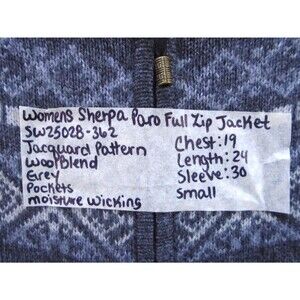 Womens Sherpa Paro Full Zip Jacket
SW2502B-362
Jacquard Pattern
Wool Blend
Grey
Pockets
moisture wicking
Chest: 19
Length: 24
Sleeve: 30
Small